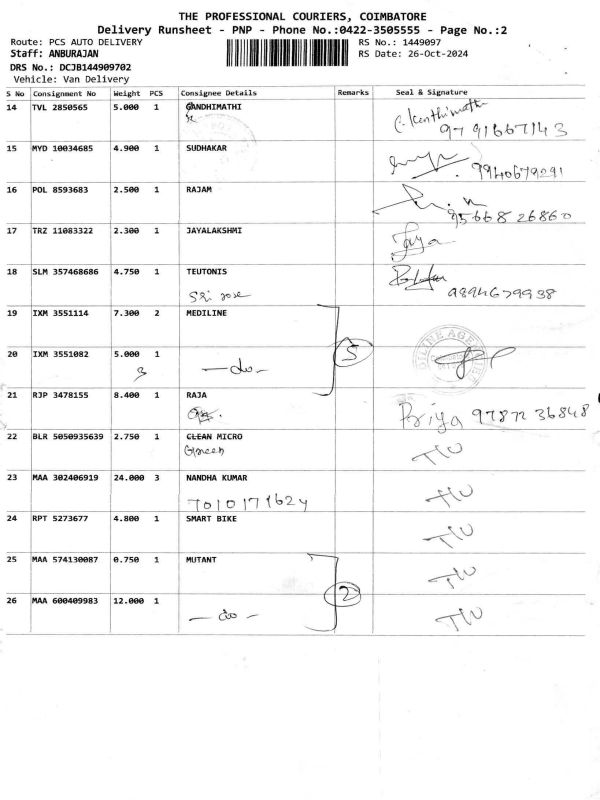 THE PROFESSIONAL COURIERS, COIMBATORE
Delivery Runsheet - PNP - Phone No.:0422-3505555 - Page No.:2
Route: PCS AUTO DELIVERY RS No.: 1449097
Staff: ANBURAJAN RS Date: 26-Oct-2024
DRS No.: DCJB144909702
Vehicle: Van Delivery
S No Consignment No Weight PCS Consignee Details Remarks Seal & Signature
14 TVL 2850565 5.000 1 GANDHIMATHI
9791667143
15 MYD 10034685 4.900 1 SUDHAKAR
9940679291
16 POL 8593683 2.500 1 RAJAM
9566826860
17 TRZ 11083322 2.300 1 JAYALAKSHMI Jaya
18 SLM 357468686 4.750 1 TEUTONIS
Sri rose 9894679938
19 IXM 3551114 7.300 2 MEDILINE
5
20 IXM 3551082 5.000 1
3 - do -
21 RJP 3478155 8.400 1 RAJA
Priya 9787236848
22 BLR 5050935639 2.750 1 CLEAN MICRO
Green T/U
23 MAA 302406919 24.000 3 NANDHA KUMAR
7010171624 T/U
24 RPT 5273677 4.800 1 SMART BIKE
T/U
25 MAA 574130087 0.750 1 MUTANT
T/U
2
26 MAA 600409983 12.000 1
- do - T/U